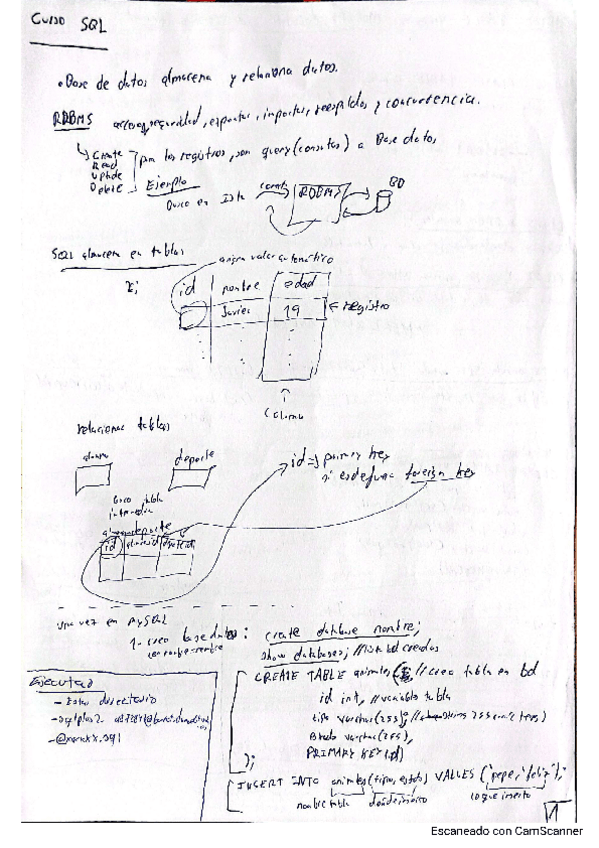 Curso SQL
• Base de datos almacena y relaciona datos.
RDBMS acceso, seguridad, exportar, importar, respaldos y concurrencia.
Create
Read
Update
Delete
por los registros, son query (consultas) a Base datos
Ejemplo
RDBMS
BD
SQL almacena en tablas
asigna valor automático
Ej
id nombre edad
Javier 19 ← registro
Columna
relacionar tablas
alumno deporte
id => primary key
si es de fuera foreign key
creo tabla
intermedia
id alumnoid deporteid
una vez en MySQL
1- creo base datos : create database nombre;
con nombre=nombre
show databases; //lista bd creadas
CREATE TABLE animales( // creo tabla en bd
id int, //variables tabla
tipo varchar(255),
estado varchar(255),
PRIMARY KEY (id)
);
INSERT INTO animales(tipo, estado) VALUES ('pepe', 'feliz');
nombre tabla donde inserto lo que inserto
Ejecutar
- Estar directorio
- sqlplus2
1
Escaneado con CamScanner